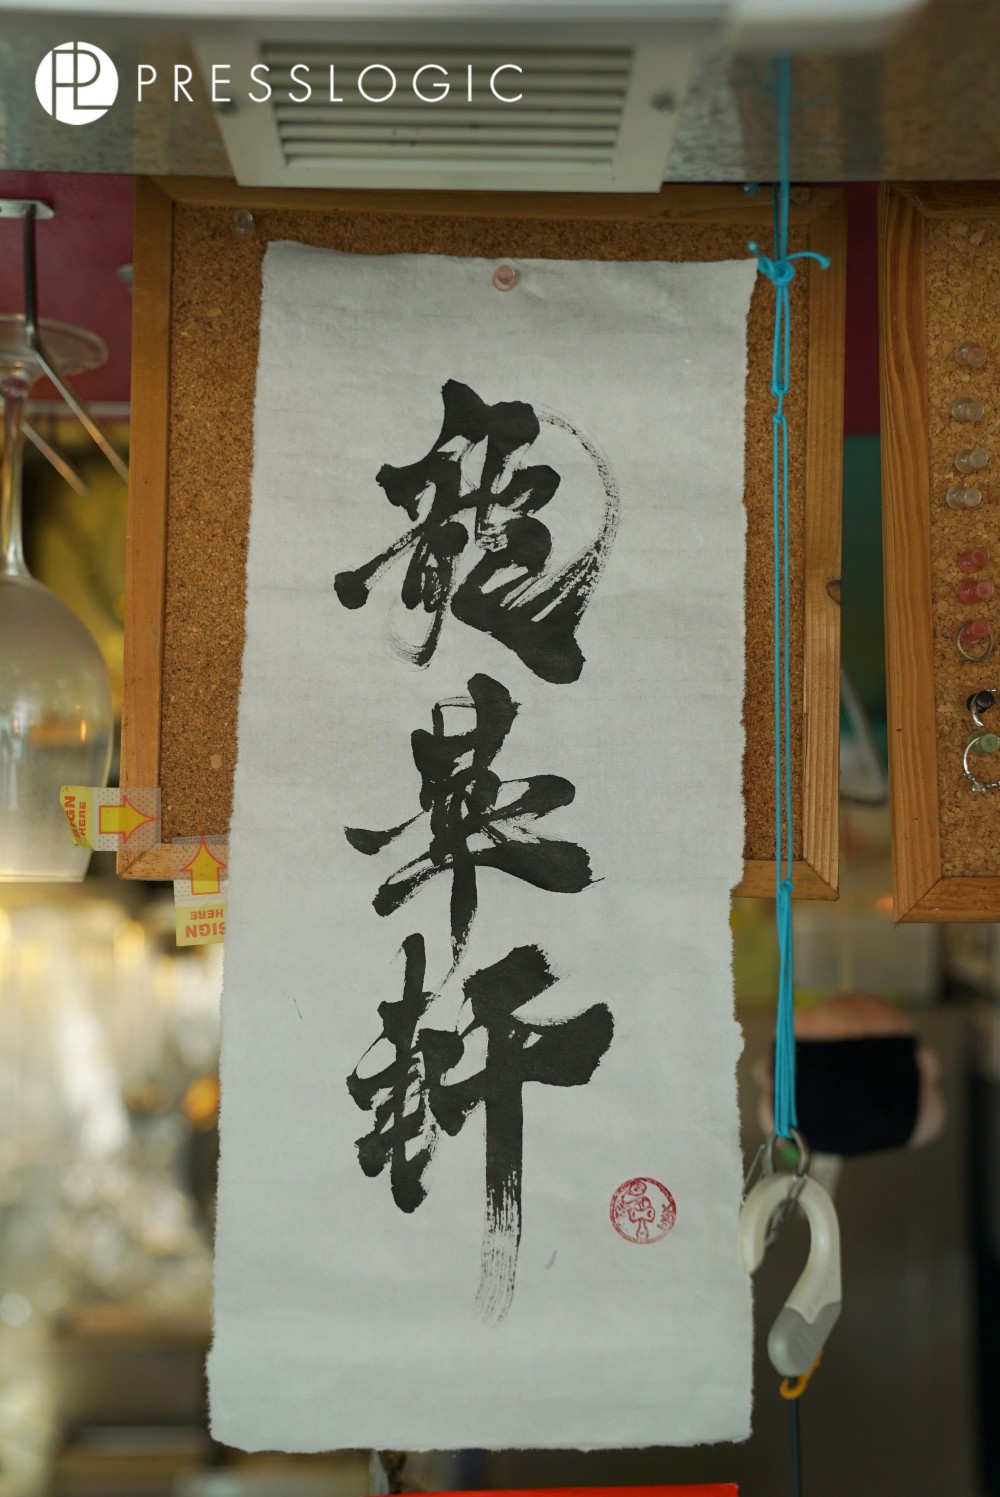 PRESSLOGIC
龍革軒
SIGN
HERE
SIGN
HERE